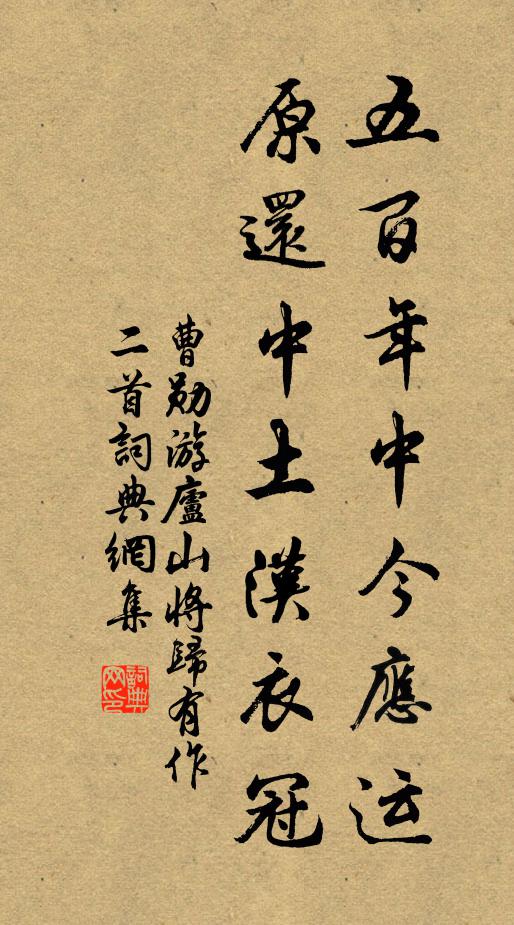 五百年中今應运
原還中土漢衣冠
曹勛游廬山將歸有作
二首詞典網集
詞典
网印